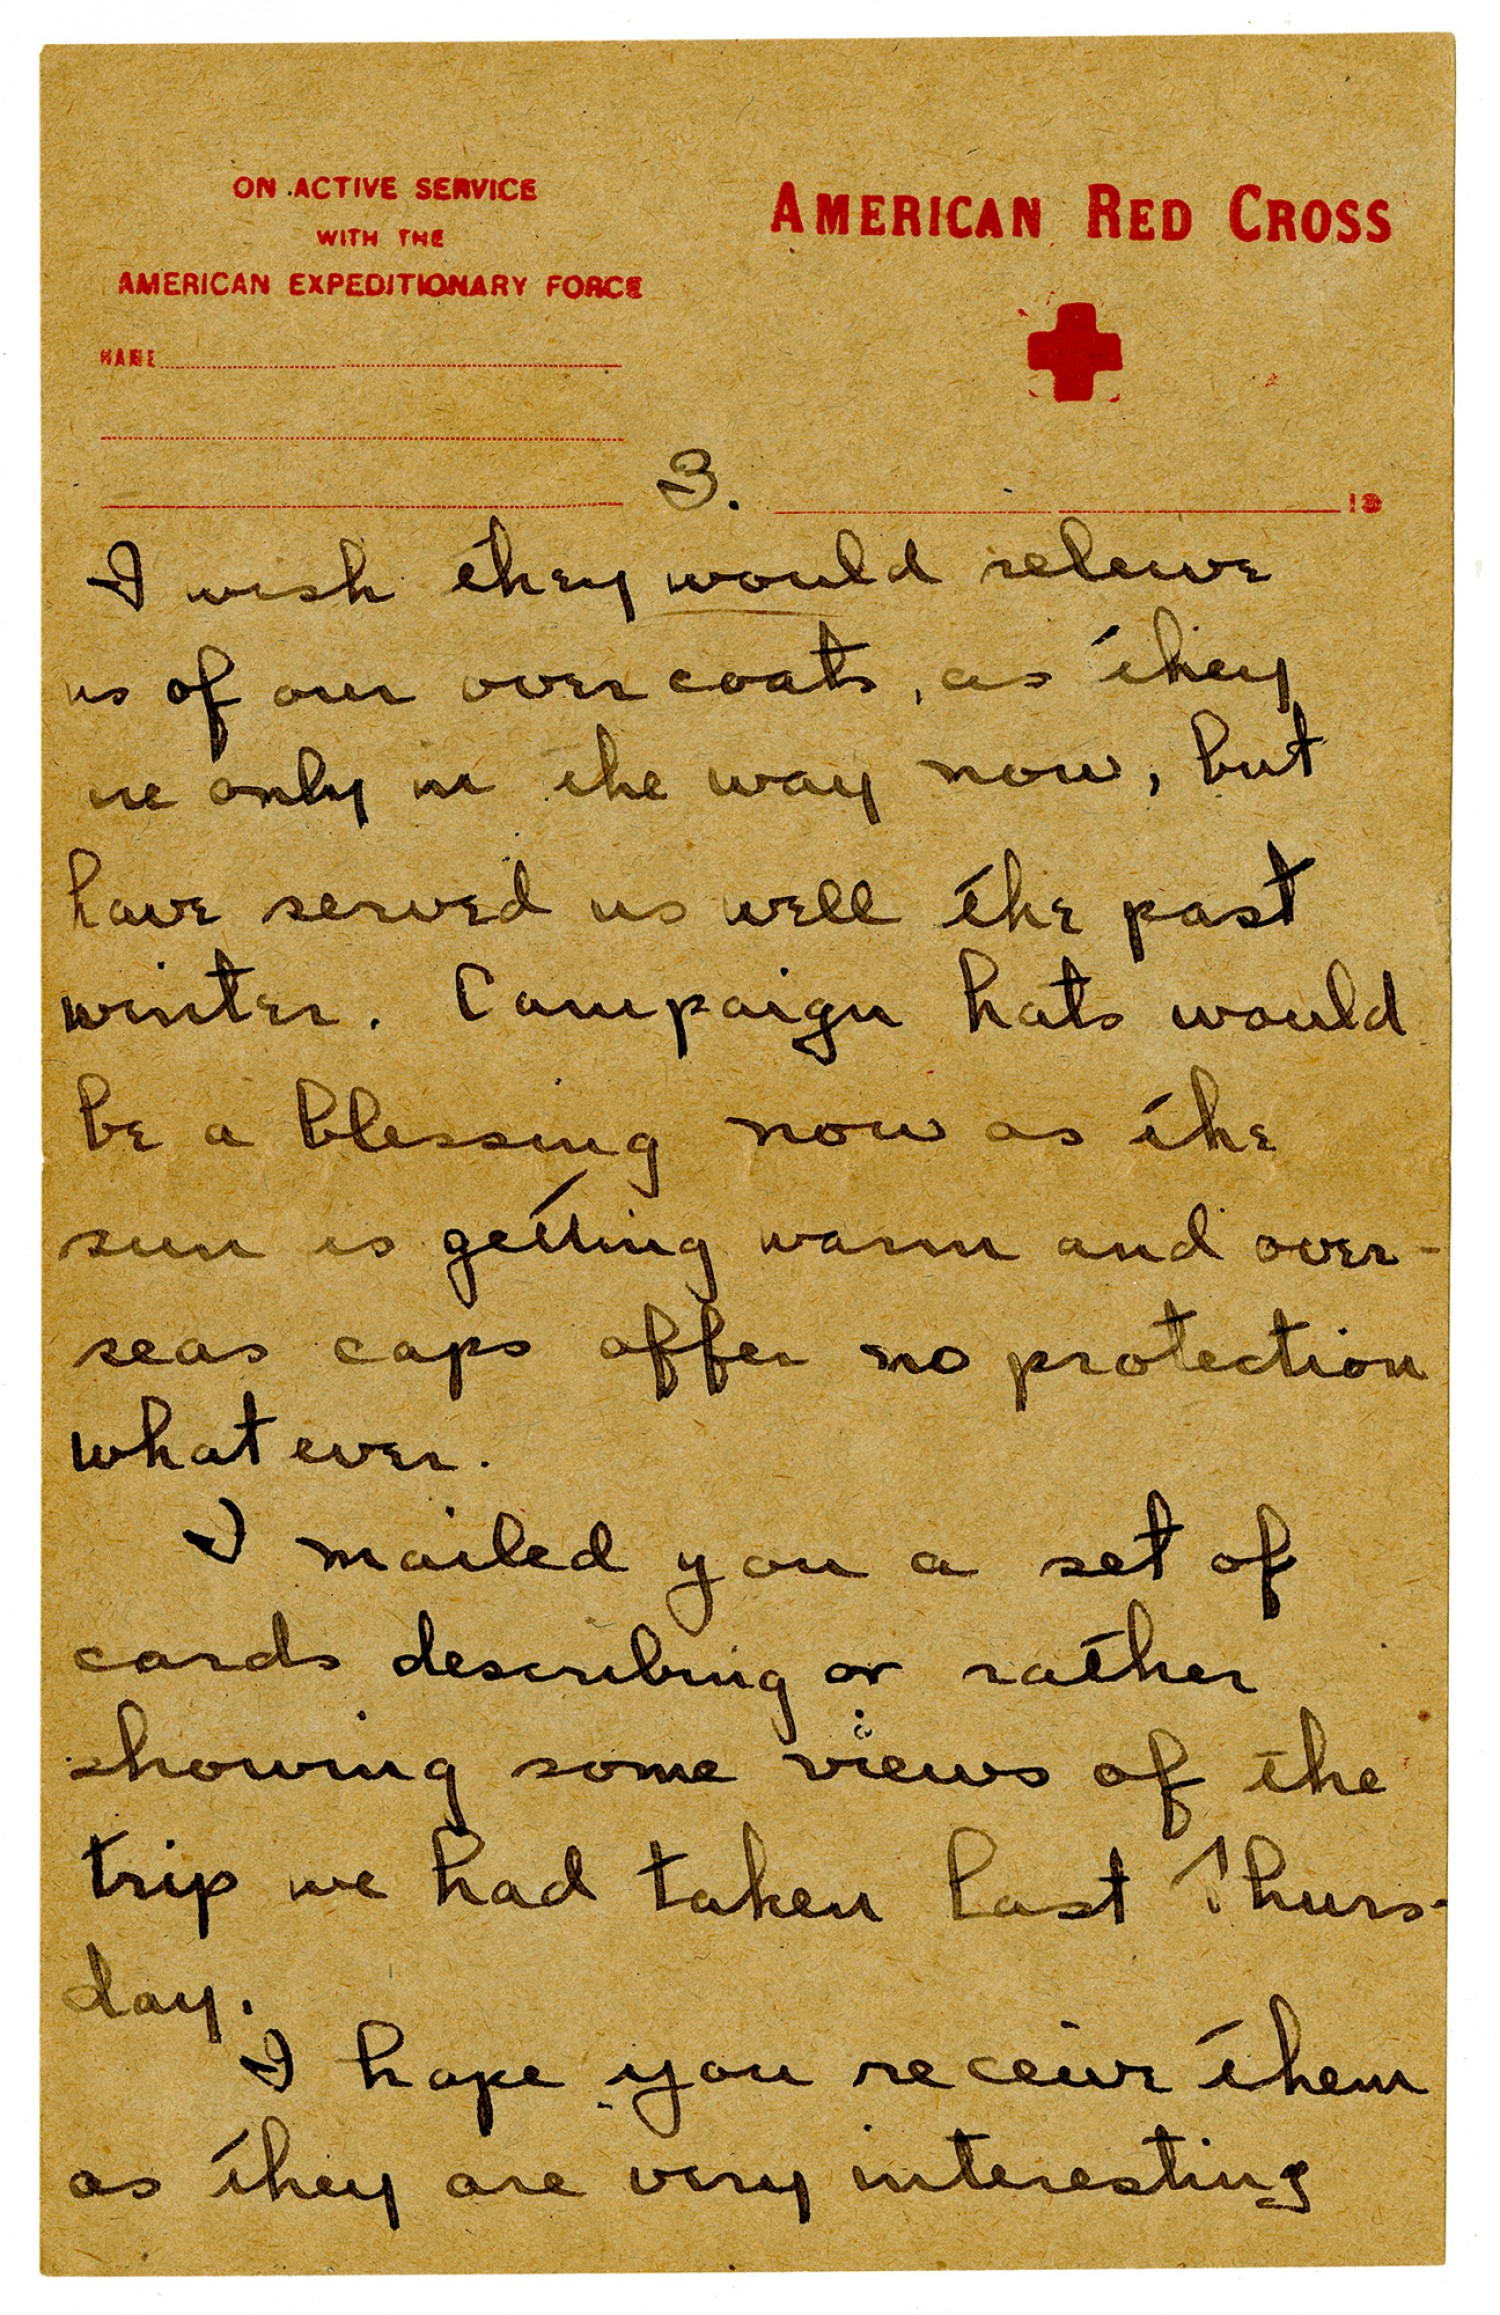 ON ACTIVE SERVICE
WITH THE
AMERICAN EXPEDITIONARY FORCE
AMERICAN RED CROSS
NAME
3.
19
I wish they would relieve
us of our over coats, as they
are only in the way now, but
have served us well the past
winter. Campaign hats would
be a blessing now as the
sun is getting warm and over-
seas caps offer no protection
what ever.
I mailed you a set of
cards describing or rather
showing some views of the
trip we had taken last Thurs-
day.
I hope you receive them
as they are very interesting